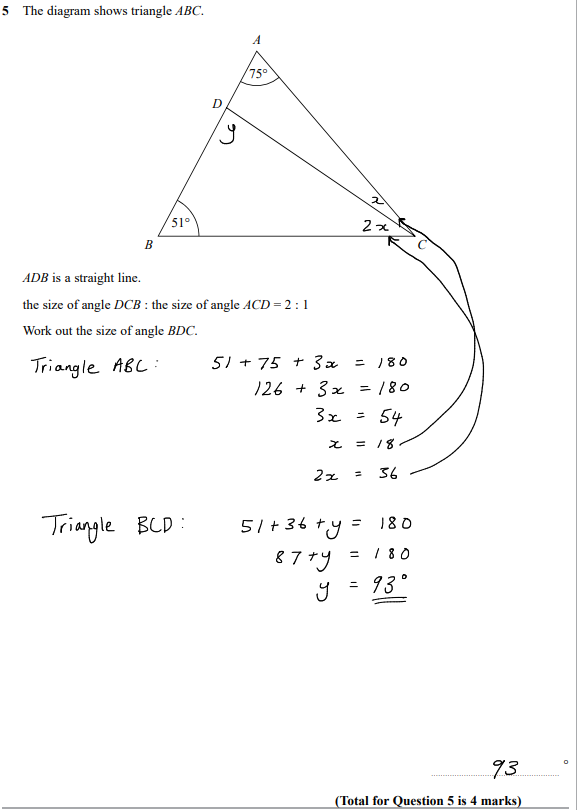 5 The diagram shows triangle ABC.
A
75°
D
y
x
51°
2x
B
C
ADB is a straight line.
the size of angle DCB : the size of angle ACD = 2 : 1
Work out the size of angle BDC.
Triangle ABC : 51 + 75 + 3x = 180
126 + 3x = 180
3x = 54
x = 18
2x = 36
Triangle BCD : 51 + 36 + y = 180
87 + y = 180
y = 93°
93 °
(Total for Question 5 is 4 marks)